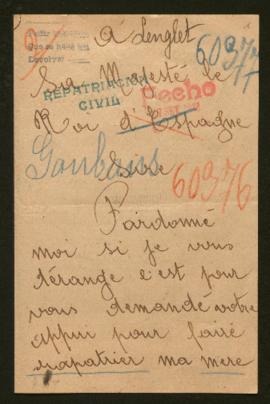 A Lenglet
60377
Sa Majesté le
REPATRIACION
CIVIL
Hecho
Roi d'Espagne
Sire
60376
Pardonné
moi si je vous
dérange c'est pour
vous demandé votre
appui pour faire
rapatrier ma mere